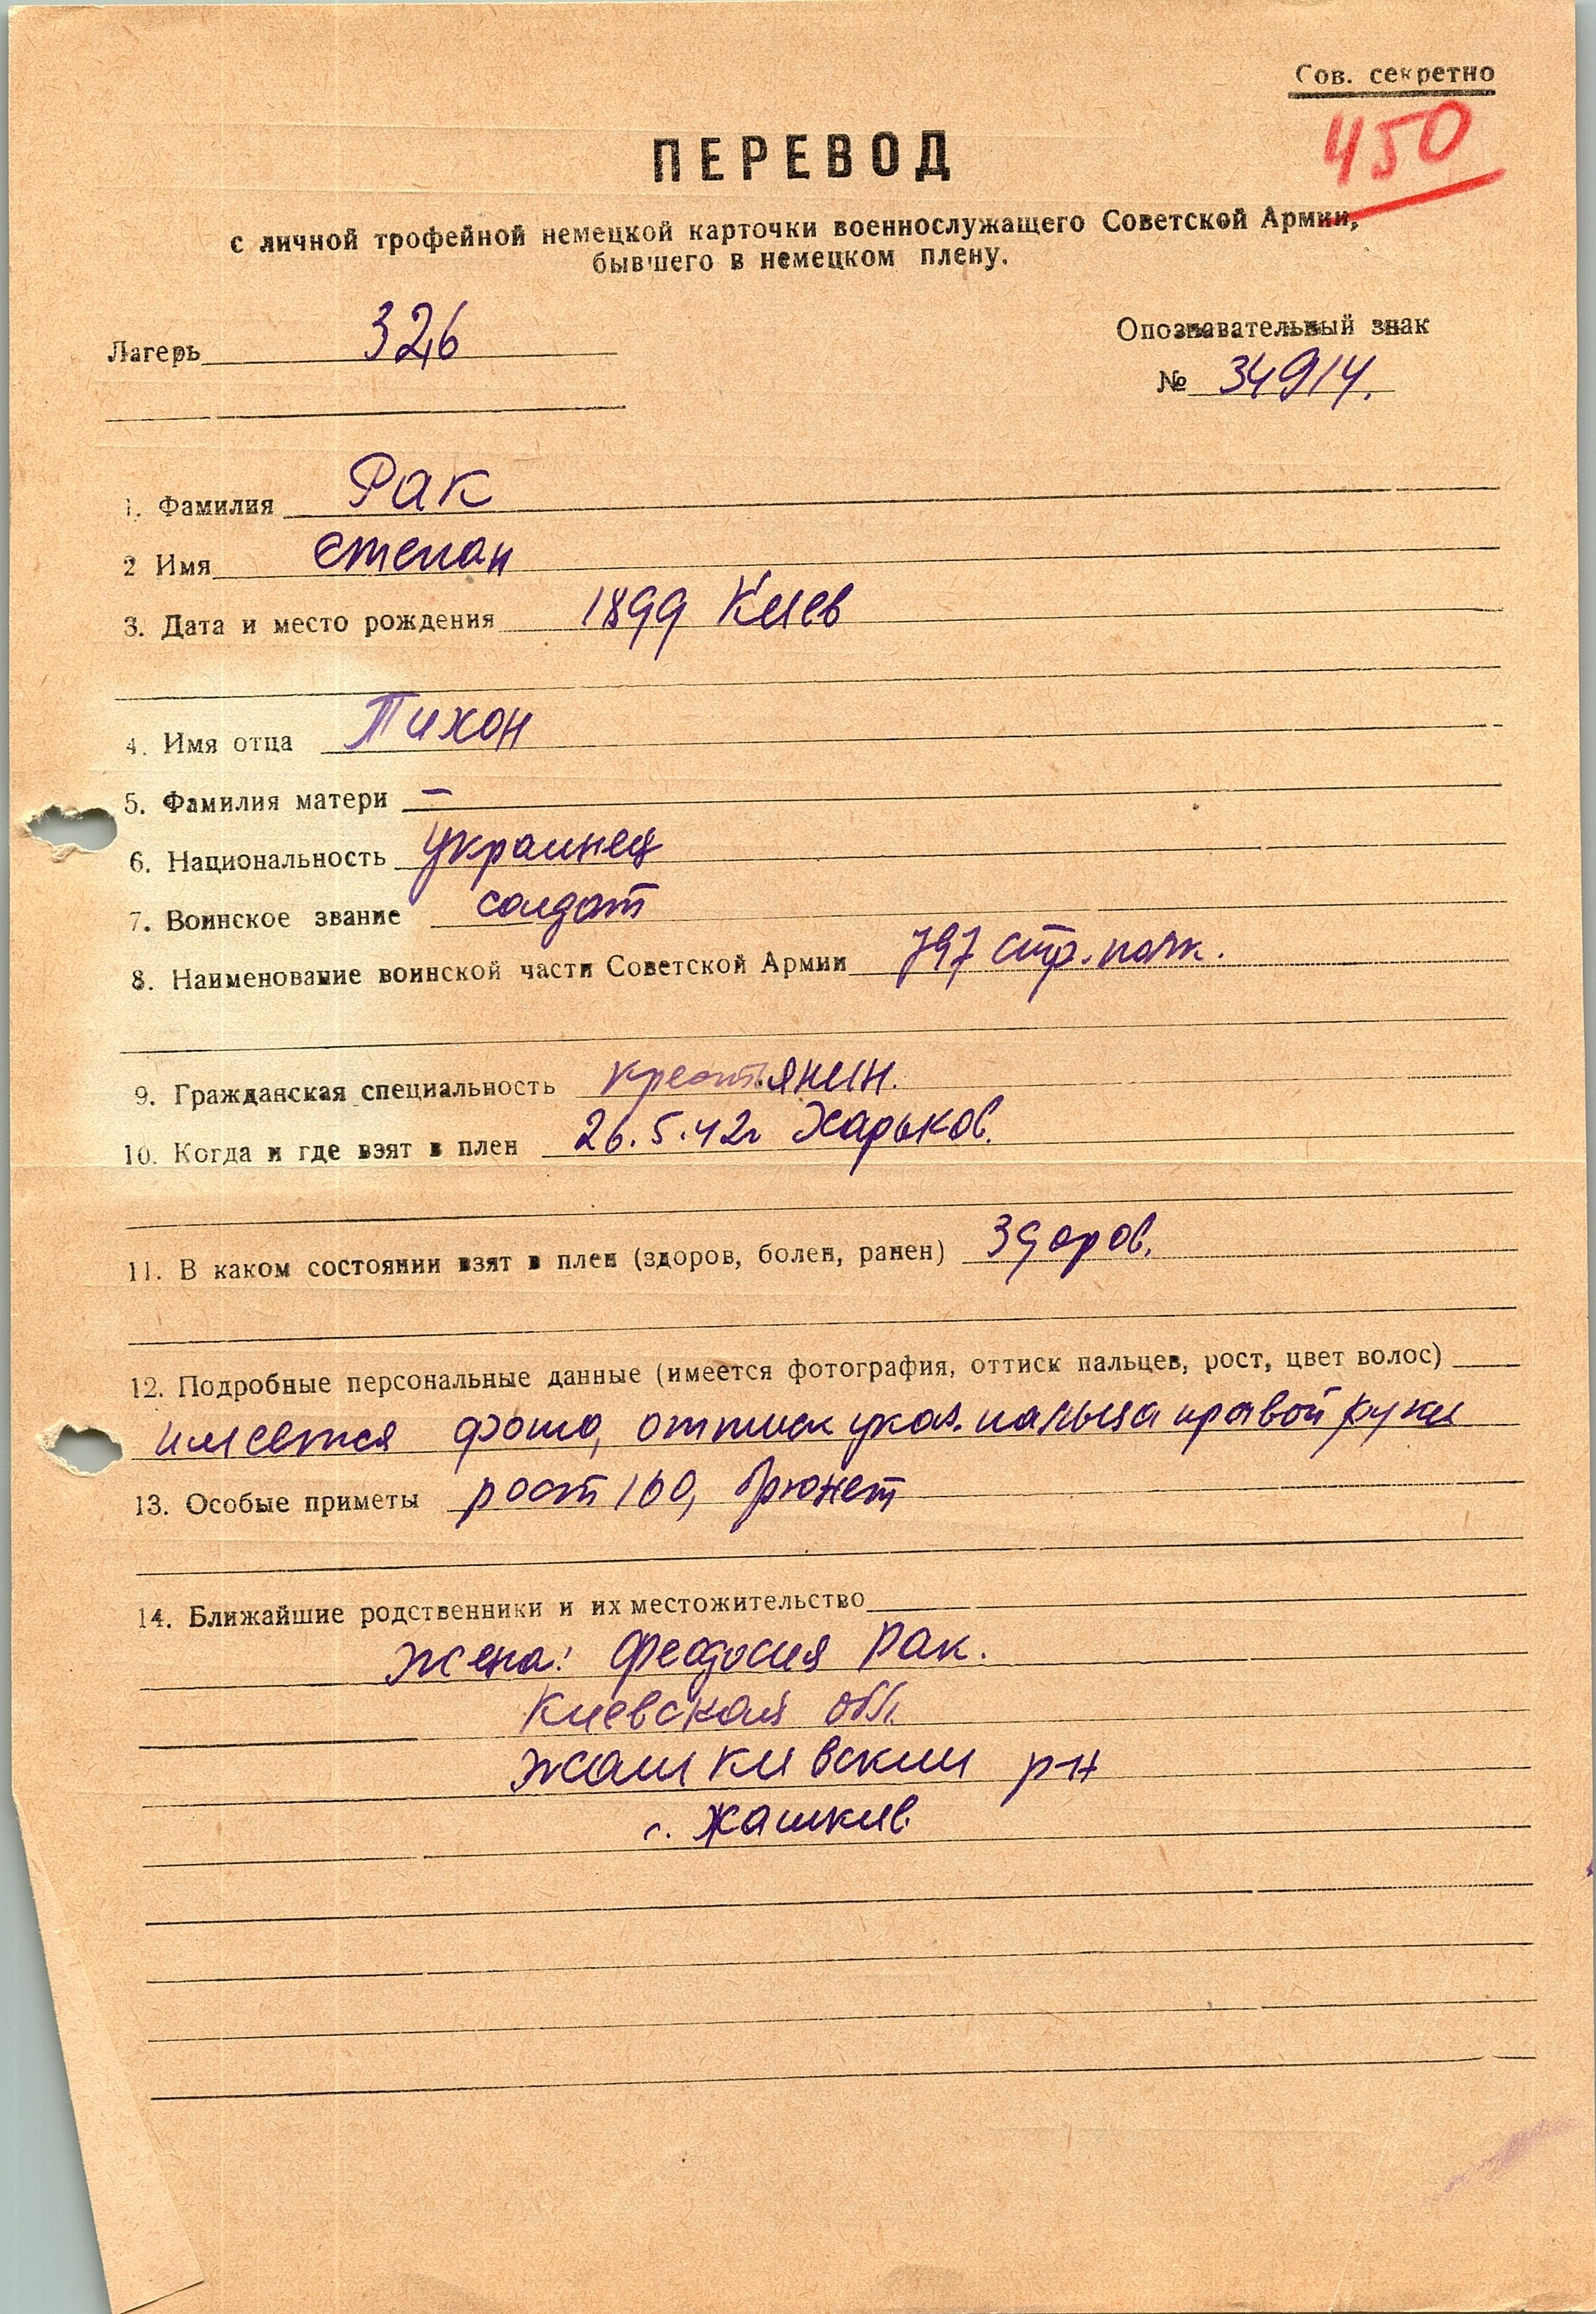 Сов. секретно
450
ПЕРЕВОД
с личной трофейной немецкой карточки военнослужащего Советской Армии,
бывшего в немецком плену.
Лагерь 326
Опознавательный знак
№ 34914.
1. Фамилия Рак
2 Имя Степан
3. Дата и место рождения 1899 Киев
4. Имя отца Тихон
5. Фамилия матери –
6. Национальность украинец
7. Воинское звание солдат
8. Наименование воинской части Советской Армии 797 стр. полк.
9. Гражданская специальность крестьянин.
10. Когда и где взят в плен 26.5.42г Харьков.
11. В каком состоянии взят в плен (здоров, болен, ранен) Здоров.
12. Подробные персональные данные (имеется фотография, оттиск пальцев, рост, цвет волос)
имеется фото, оттиск указ. пальца правой руки
13. Особые приметы рост 160, брюнет
14. Ближайшие родственники и их местожительство
жена: Феодосия Рак.
Киевская обл.
Жашкивский р-н
с. Жашкив.